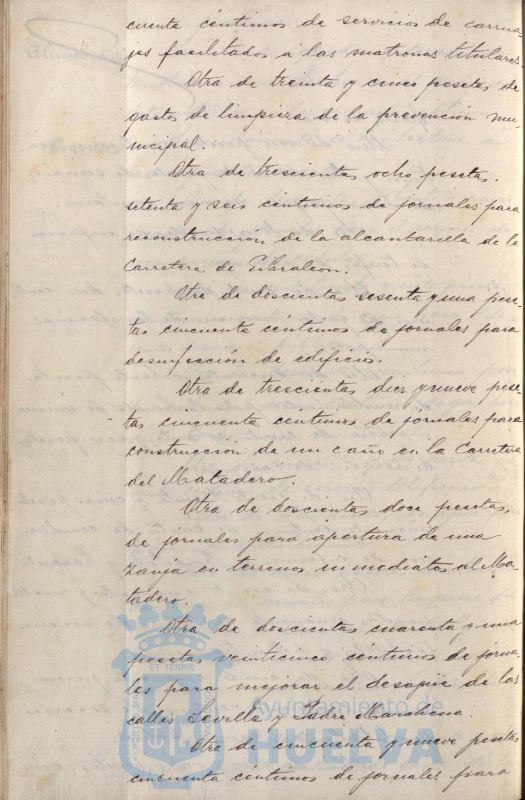 cuenta céntimos de servicios de carrua-
jes facilitados á las matronas titulares.
Otra de treinta y cinco pesetas de
gastos de limpieza de la prevención mu-
nicipal.
Otra de trescientas ocho pesetas,
setenta y seis centimos de jornales para
reconstrucción de la alcantarilla de la
Carretera de Gibraleon.
Otra de doscientas sesenta y una pese-
tas cincuenta céntimos de jornales para
desinfección de edificios.
Otra de trescientas diez y nueve pese-
tas cincuenta céntimos de jornales para
construcción de un caño en la Carretera
del Matadero.
Otra de doscientas doce pesetas,
de jornales para apertura de una
zanja en terrenos inmediatos al Ma-
tadero.
Otra de doscientas cuarenta y una
pesetas veinticinco céntimos de jorna-
les para mejorar el desagüe de las
calles Sevilla y Padre Marchena.
Otra de cincuenta y nueve pesetas
cincuenta céntimos de jornales para
Ayuntamiento de
HUELVA